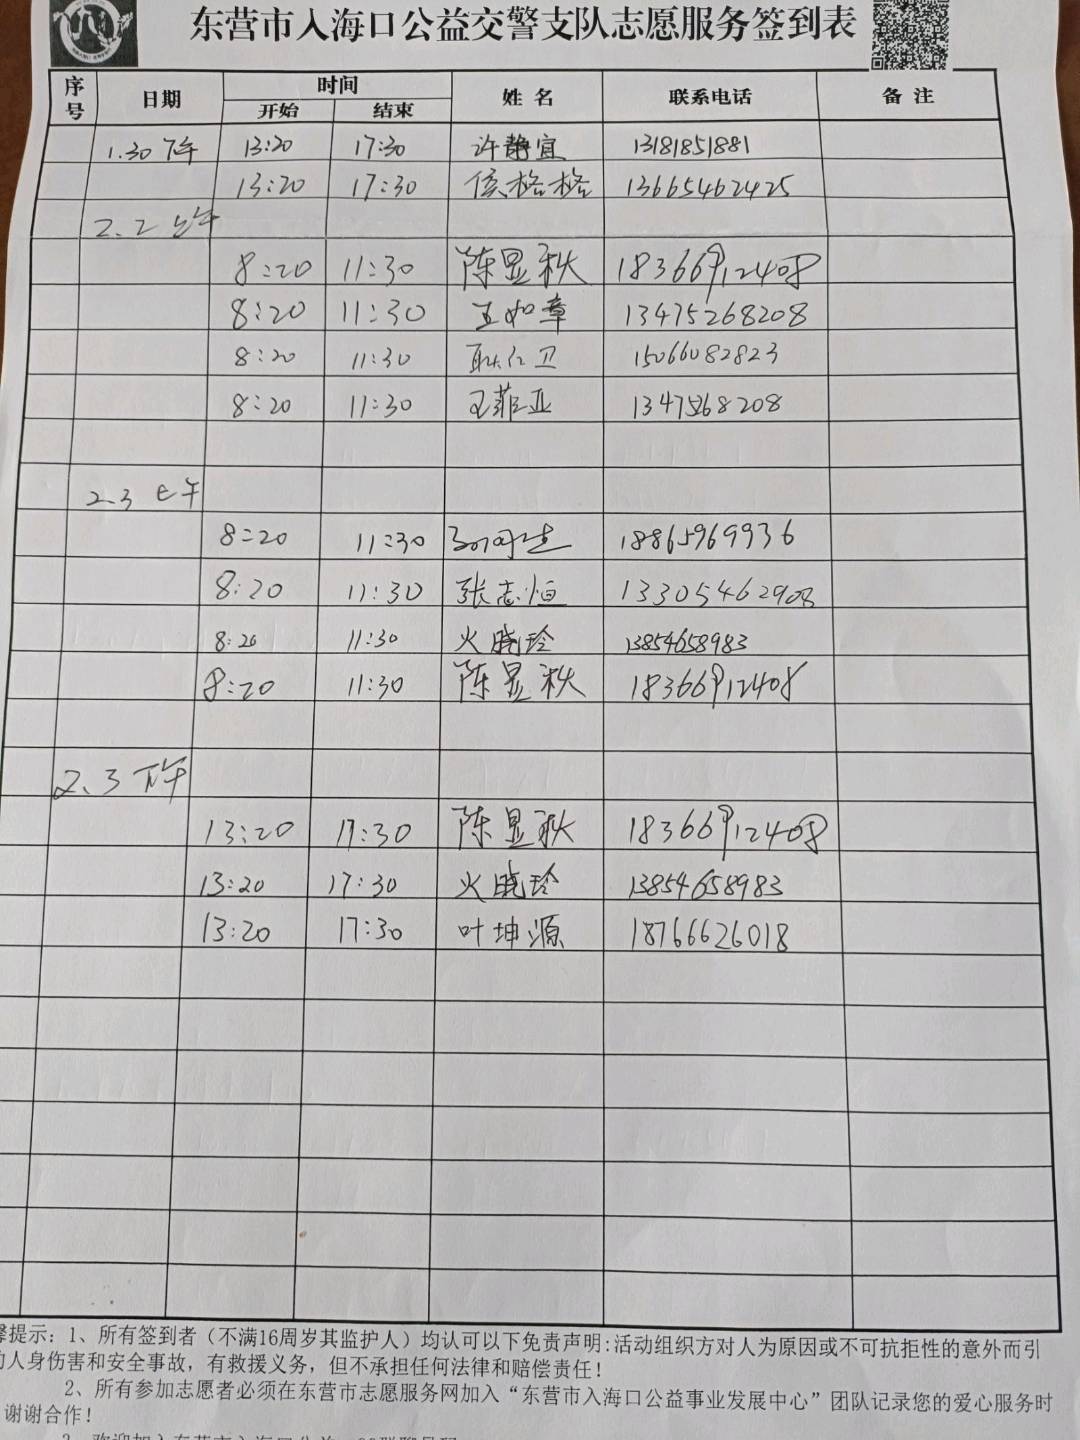 东营市入海口公益交警支队志愿服务签到表
序号 日期 时间 姓名 联系电话 备注
开始 结束
1.30 下午 13:20 17:30 许静宜 13181851881
13:20 17:30 侯格格 13665462425
2.2 上午
8:20 11:30 陈显秋 18366912408
8:20 11:30 王如章 13475268208
8:20 11:30 耿仁卫 15066082823
8:20 11:30 王菲亚 1347568208
2.3 上午
8:20 11:30 18865969936
8:20 11:30 张志恒 13305462908
8:20 11:30 火晓玲 13854658983
8:20 11:30 陈显秋 18366912408
2.3 下午
13:20 17:30 陈显秋 18366912408
13:20 17:30 火晓玲 13854658983
13:20 17:30 叶坤源 18766626018
提示：1、所有签到者（不满16周岁其监护人）均认可以下免责声明：活动组织方对人为原因或不可抗拒性的意外而引
人身伤害和安全事故，有救援义务，但不承担任何法律和赔偿责任！
2、所有参加志愿者必须在东营市志愿服务网加入“东营市入海口公益事业发展中心”团队记录您的爱心服务时
谢谢合作！